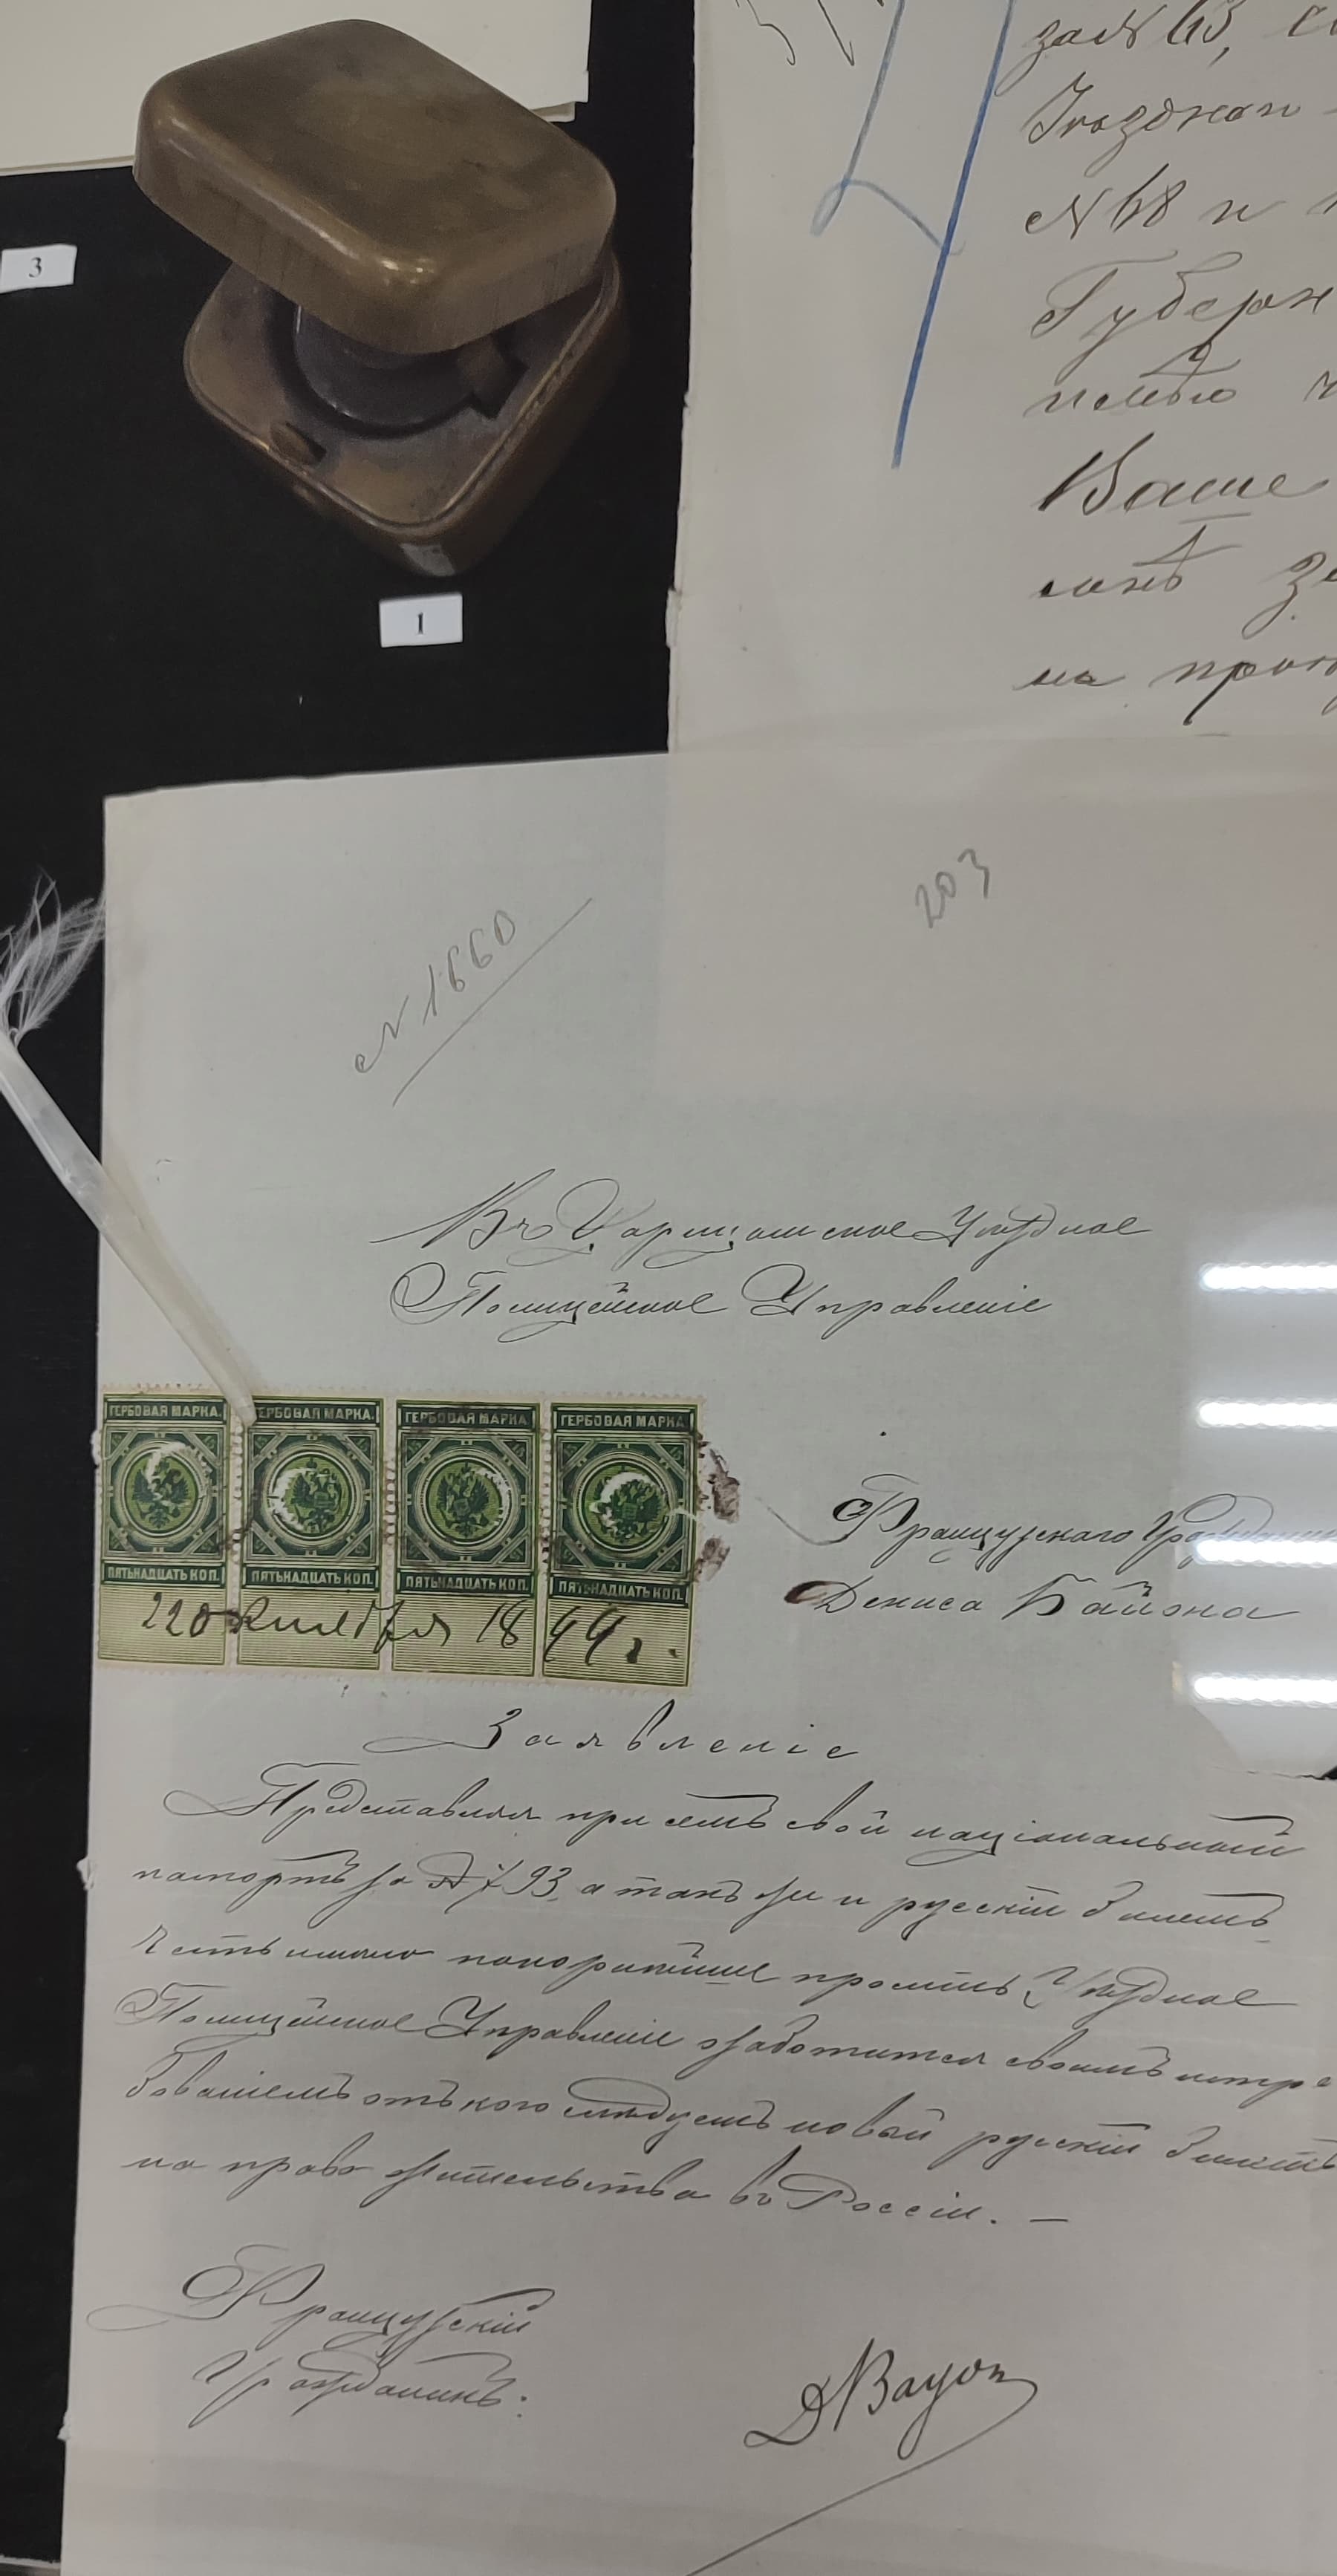 3
1
за № 63, 
Уѣздном
№ 68 и
Губерн
имѣю ч
Ваше
мнѣ
на прож
203
№ 1660
Въ Царицынское Уѣздное
Полицейское Управленіе
ГЕРБОВАЯ МАРКА. ГЕРБОВАЯ МАРКА. ГЕРБОВАЯ МАРКА. ГЕРБОВАЯ МАРКА.
ПЯТЬНАДЦАТЬ КОП. ПЯТЬНАДЦАТЬ КОП. ПЯТЬНАДЦАТЬ КОП. ПЯТЬНАДЦАТЬ КОП.
22 18 г.
Французскаго Гражданин
Дениса Байона
Заявленіе
Представляя при семъ свой національный
паспортъ за № 793, а такъ же и русскій билетъ
честь имѣю покорнѣйше просить Уѣздное
Полицейское Управленіе озаботится своимъ истре
бованіемъ отъ кого слѣдуетъ новый русскій билетъ
на право жительства въ Россіи. —
Французскій
Гражданинъ:
D Bayon